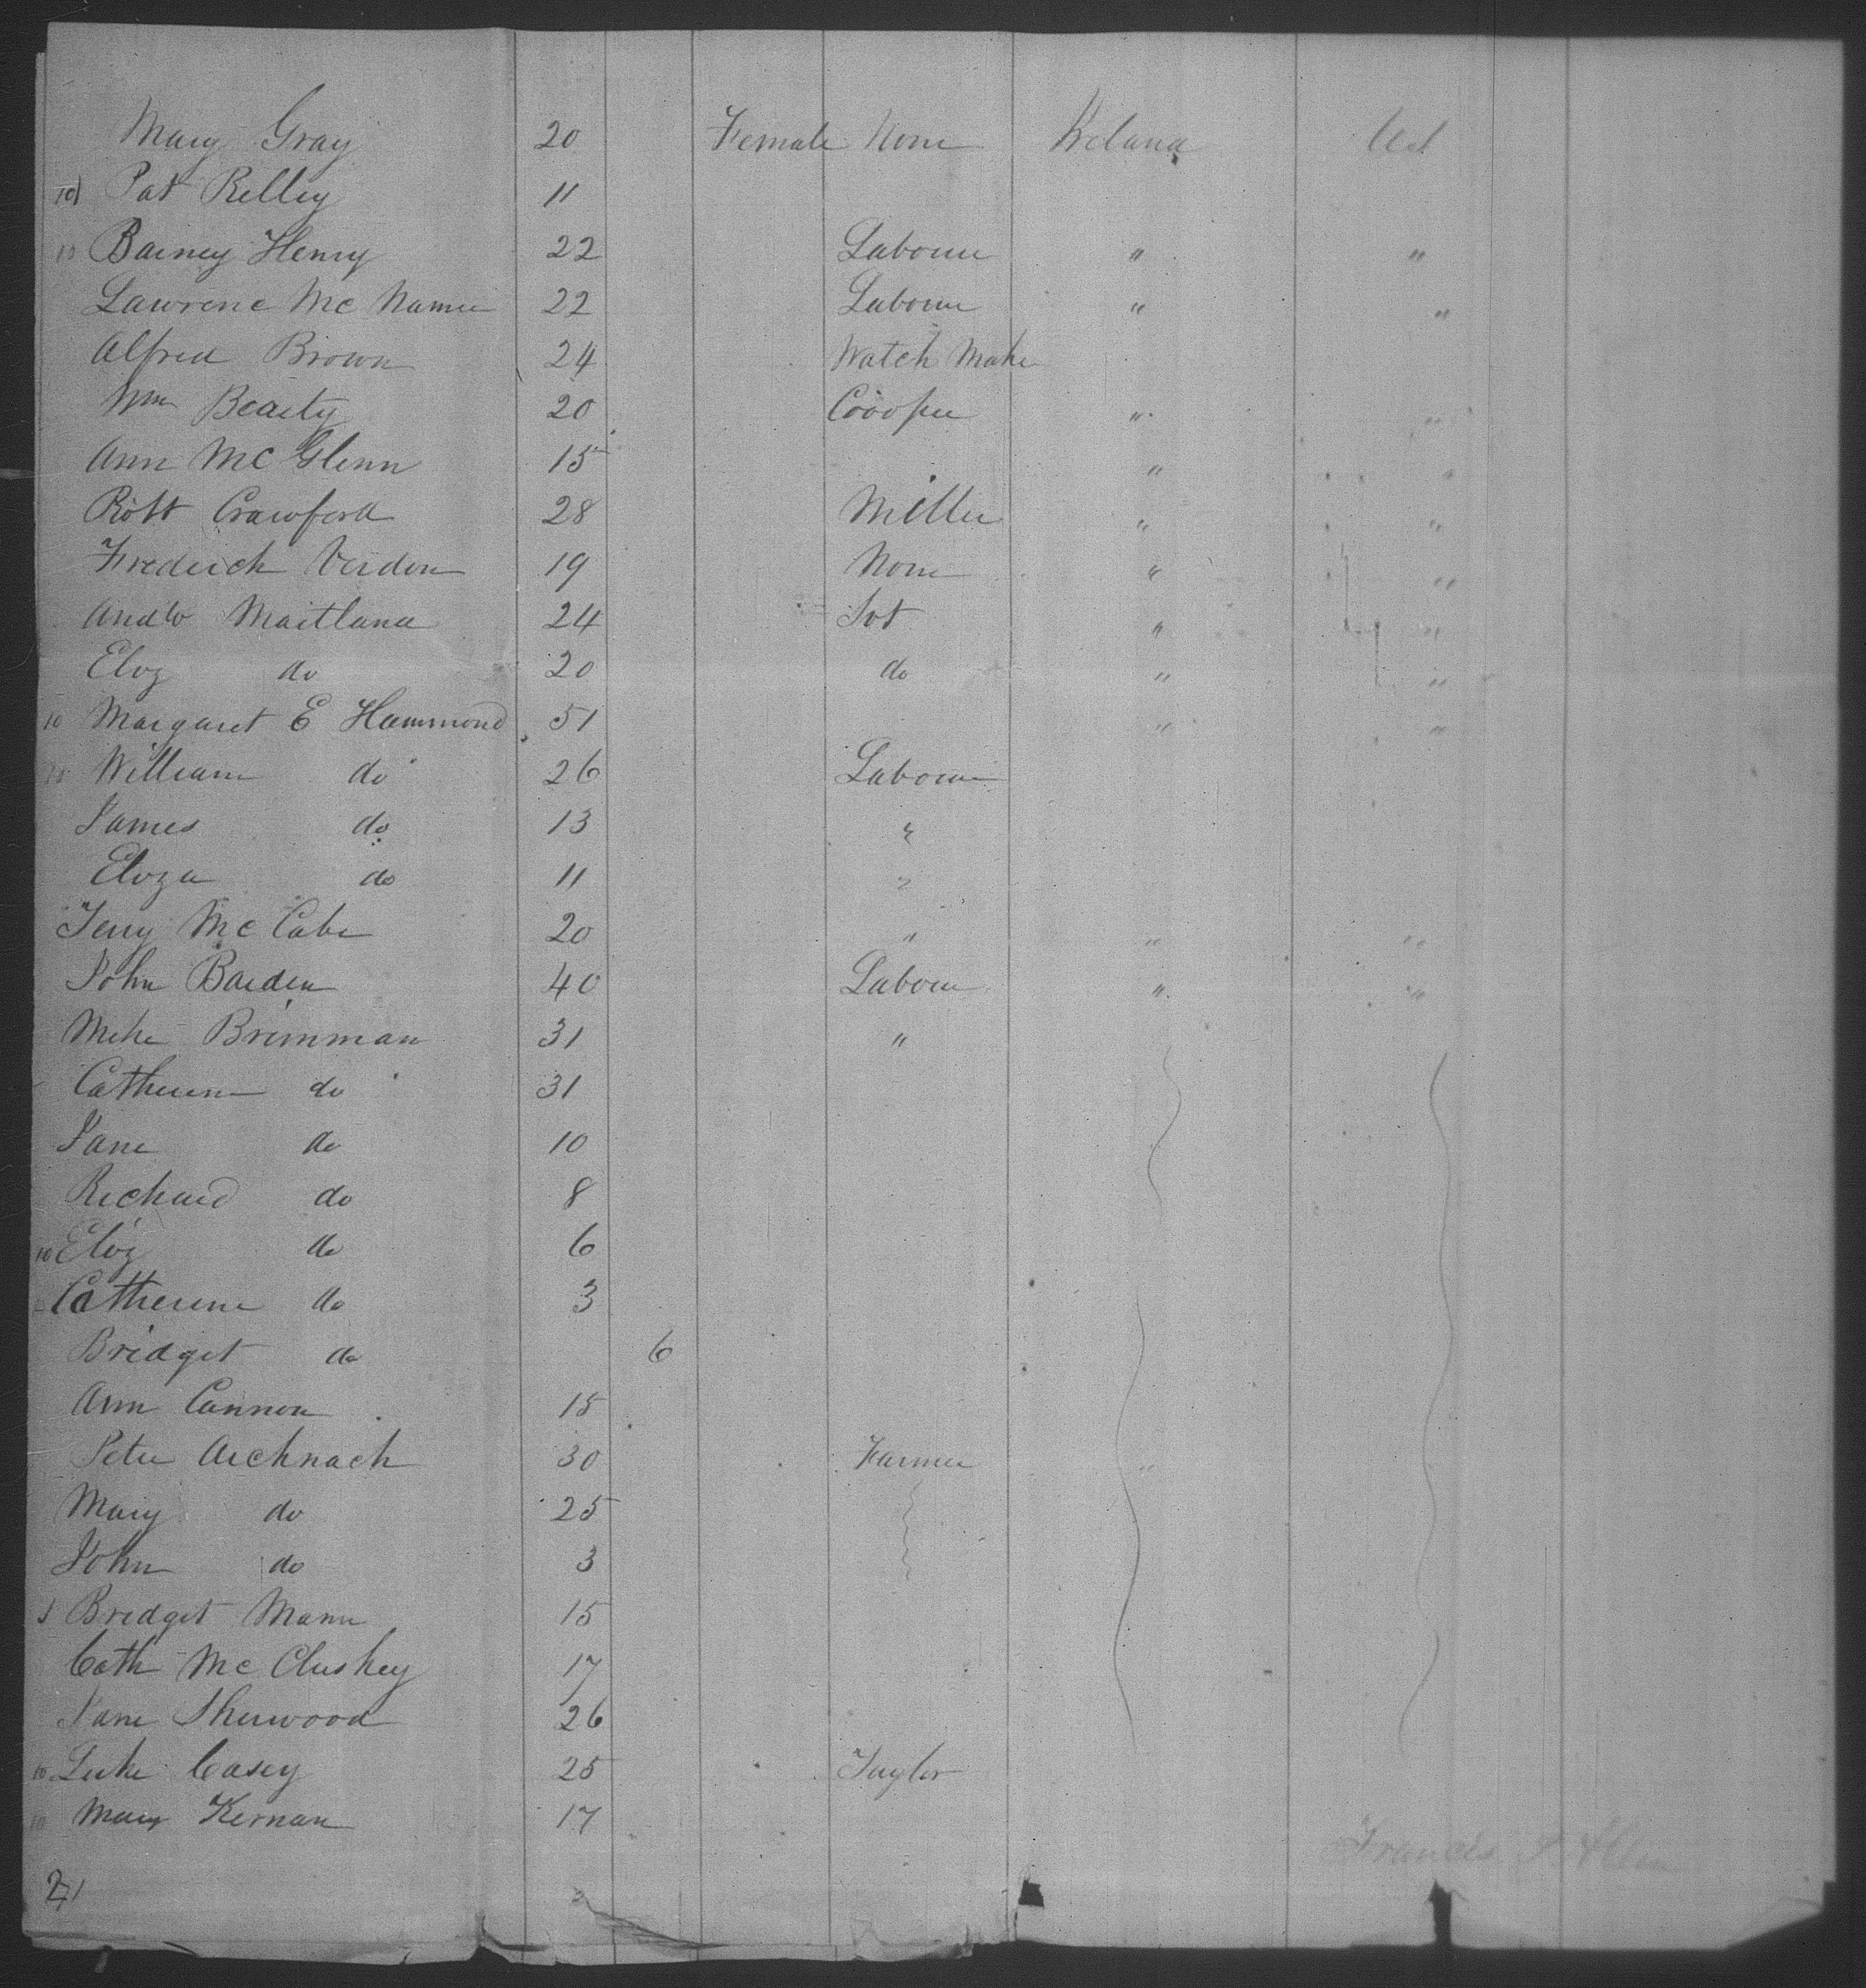 Mary Gray 20 Female None Ireland U S
10 Pat Relley 11
10 Barney Henry 22 Labourer " "
Lawrence Mc Namee 22 Labourer " "
Alfred Brown 24 Watch Maker
Wm Beaity 20 Coooper " "
Ann Mc Glenn 15 " "
Robt Crawford 28 Miller " "
Frederick Verdon 19 None " "
Andw Maitland 24 " "
Eliz do 20 do " "
10 Margaret E Hammond 51 " "
William do 26 Labourer
James do 13 "
Eliza do 11 "
Terry Mc Cabe 20 " " "
John Barden 40 Labourer " "
Mike Brimman 31 "
Catherine do 31
Jane do 10
Richard do 8
10 Eliz do 6
Catherine do 3
Bridget do 6
Ann Cannon 15
Peter 30 Farmer "
Mary do 25
John do 3
Bridget Mann 15
Cath Mc Cluskey 17
Jane Sherwood 26
10 Luke Casey 25 Taylor
10 Mary Kernan 17
Francis